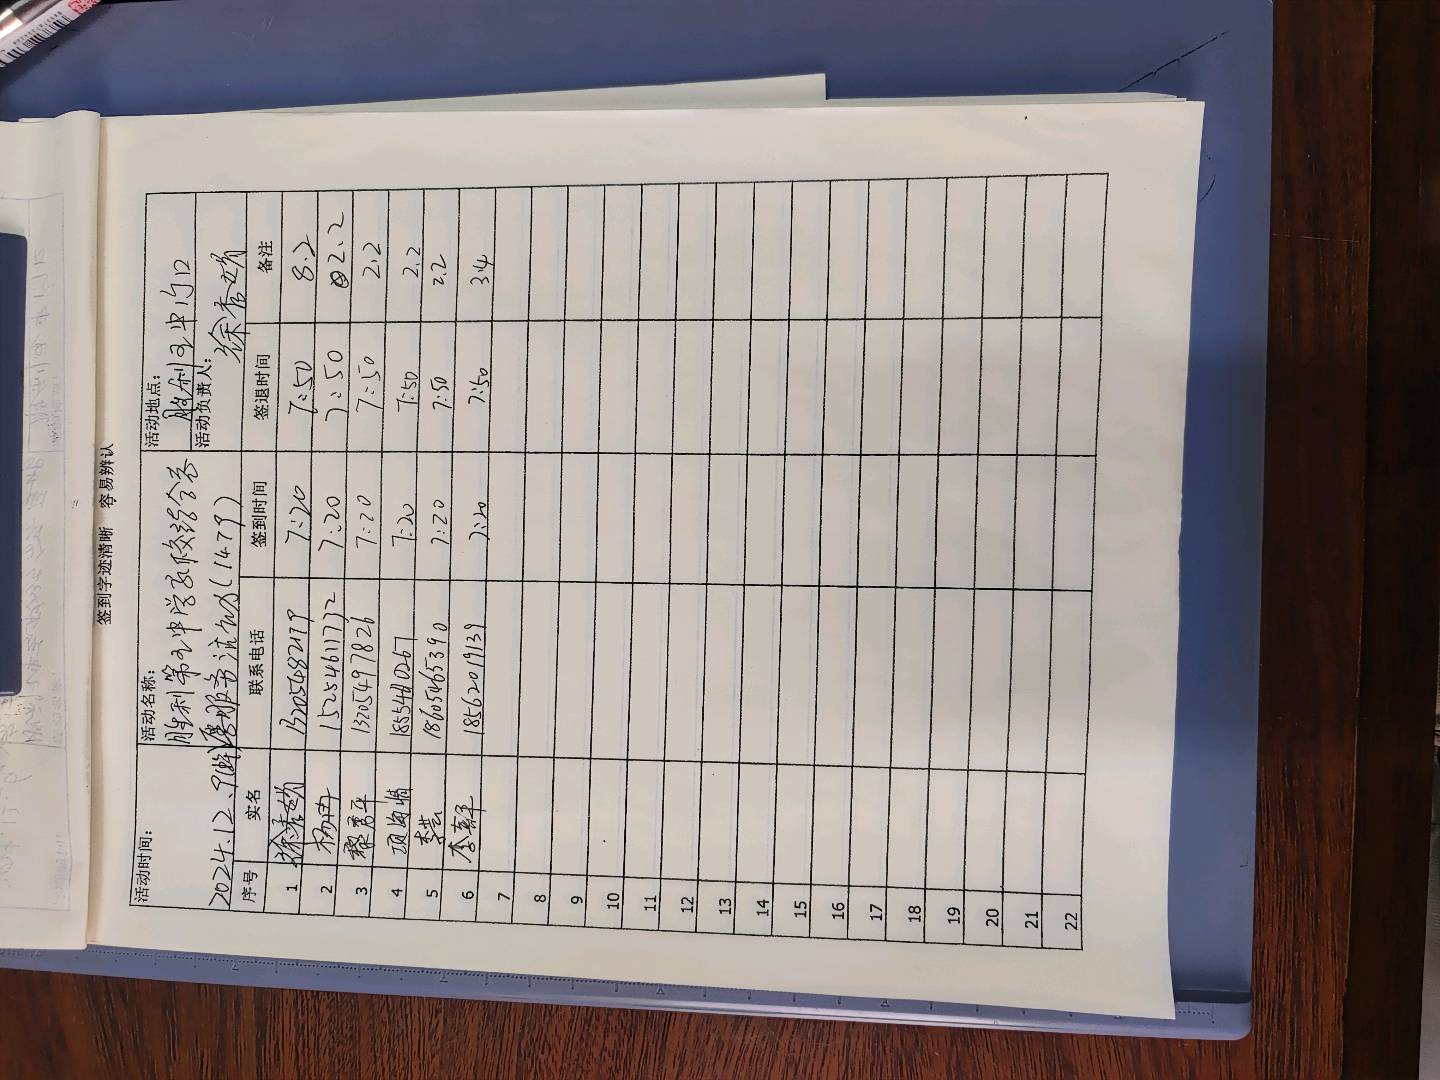 签到字迹清晰 容易辨认
活动时间: 活动名称: 活动地点:
2024.12.9(晚) 胜利第五中学家校议会委 胜利五中门口
爱服务流动(1479) 活动负责人: 徐秀娟
序号 实名 联系电话 签到时间 签退时间 备注
1 徐秀娟 13205482179 7:20 7:50 8.2
2 杨冉 15254611732 7:20 7:50 2.2
3 黎秀平 13205497826 7:20 7:50 2.2
4 项娟娟 7:20 7:50 2.2
5 李芸 18605465390 7:20 7:50 2.2
6 李喜军 18562019139 7:20 7:50 3.4
7
8
9
10
11
12
13
14
15
16
17
18
19
20
21
22